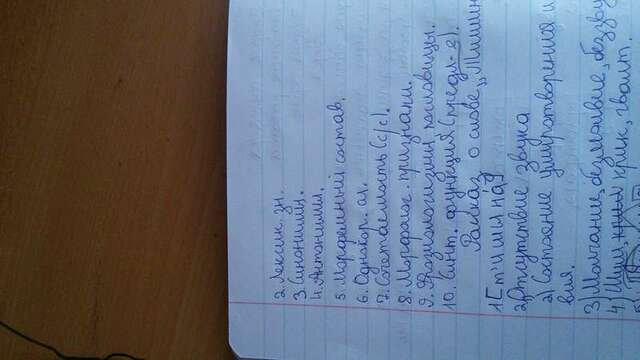 2. Лексич. зн.
3. Синонимы.
4. Антонимы.
5. Морфемный состав.
6. Однокор. сл.
7. Сочетаемость (с/с).
8. Морфолог. признаки.
9. Фразиологизмы, пословицы.
10. Синт. функция (предл-е).
Рассказ о слове „Тишин
1. [т'ишына́]
2) Отсутствие звука
2) Состояние умиротворения и
вия.
3) Молчание, безмолвие, беззву
4) Шум, крик, гвалт.